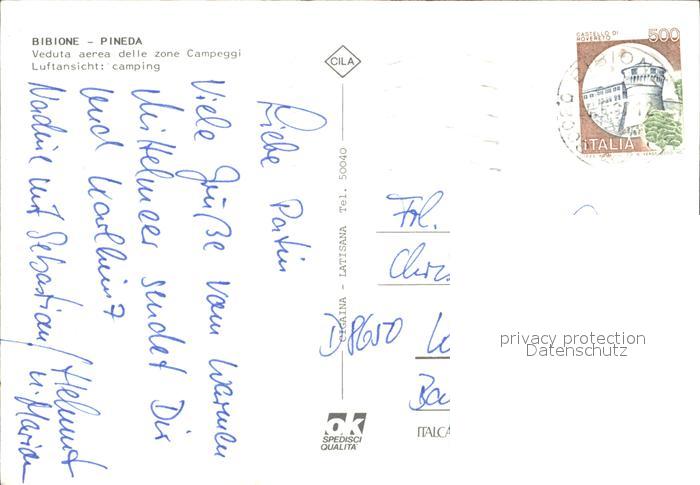 BIBIONE - PINEDA
Veduta aerea delle zone Campeggi
Luftansicht: camping
CILA
CASTELLO DI
ROVERETO
500
ITALIA
Liebe Patin
Viele Grüße vom warmen
Mittelmeer sendet Dir
und Karlheinz
Nadine mit Sebastian, Helmut
u. Marion
CIGAINA - LATISANA Tel. 50040
Frl.
Chris
D8650
Ba
privacy protection
Datenschutz
ok
SPEDISCI
QUALITA'
ITALCA